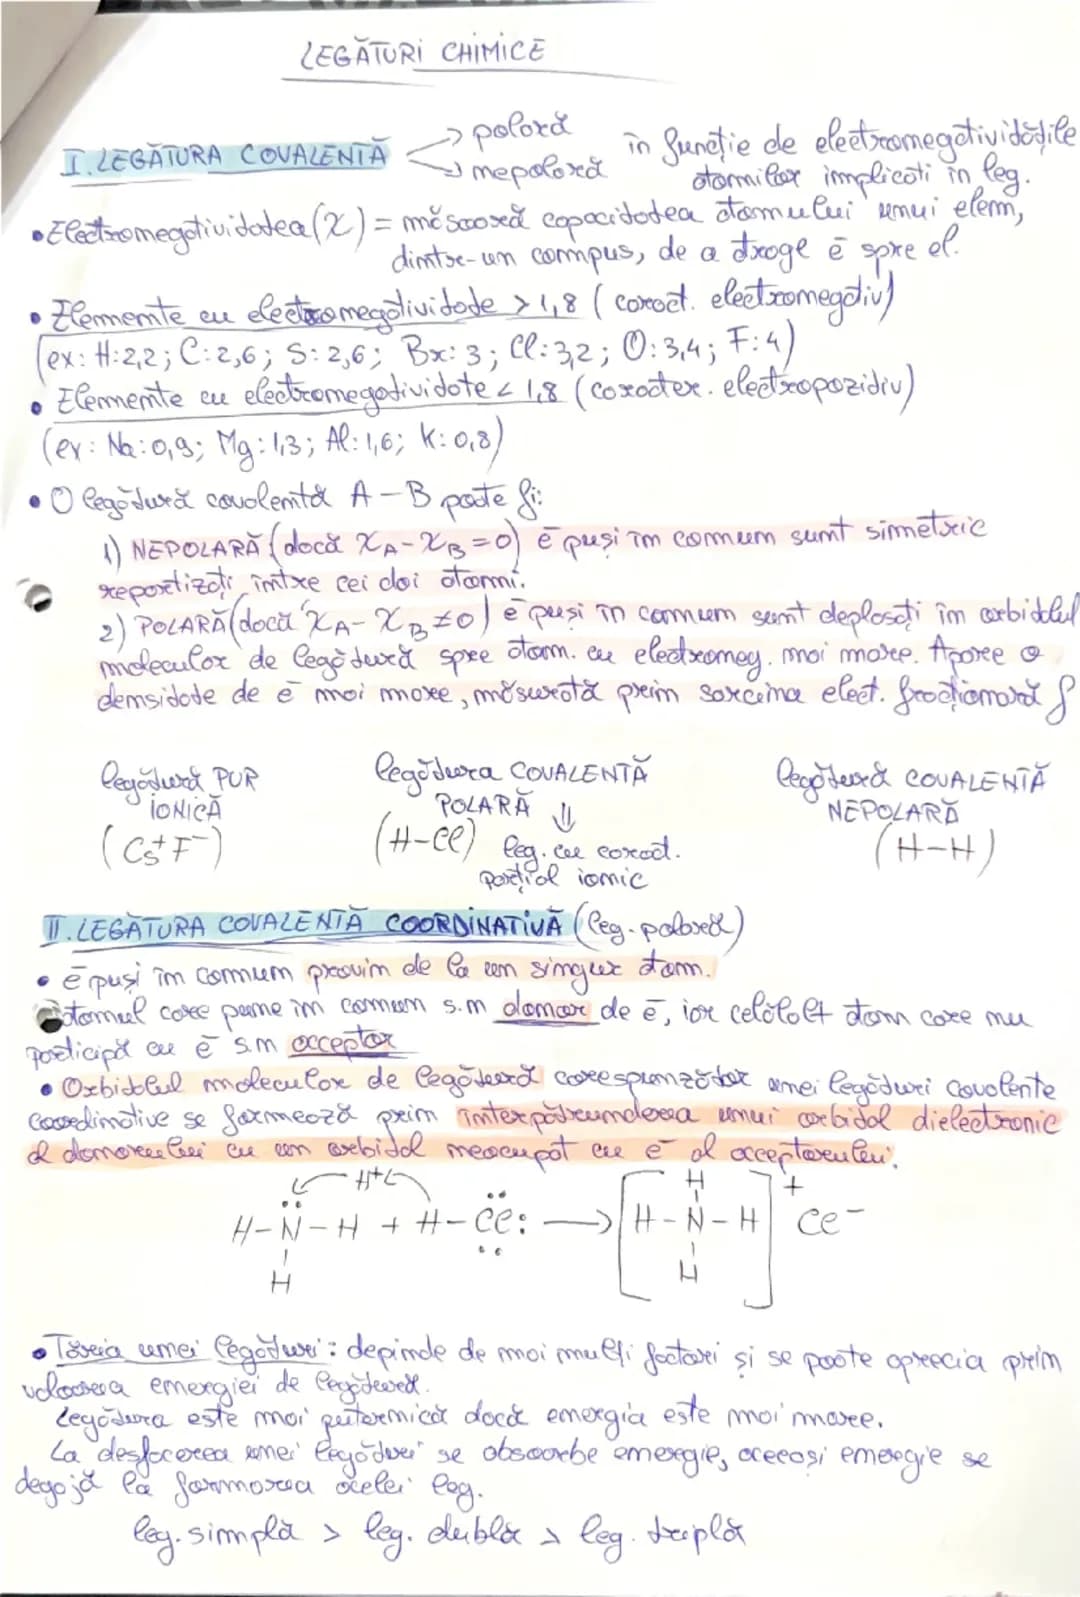 LEGĂTURI CHIMICE
I. LEGĂTURA COVALENTĂ → polară
→ nepolară
în funcție de electronegativitățile
atomilor implicați în leg.
• Electronegativitatea (χ) = măsoară capacitatea atomului unui elem,
dintr-un compus, de a atrage ē spre el.
• Elemente cu electronegativitate > 1,8 (caract. electronegativ)
(ex: H:2,2; C:2,6; S:2,6; Br:3; Cl:3,2; O:3,4; F:4)
• Elemente cu electronegativitate < 1,8 (caracter. electropozitiv)
(ex: Na:0,9; Mg:1,3; Al:1,6; K:0,8)
• O legătură covalentă A – B poate fi:
1) NEPOLARĂ (dacă χA - χB = 0) ē puși în comun sunt simetric
repartizați între cei doi atomi.
2) POLARĂ (dacă χA - χB ≠ 0) ē puși în comun sunt deplasați în orbitalul
molecular de legătură spre atom. cu electroneg. mai mare. Apare o
densitate de ē mai mare, măsurată prin sarcina elect. fracționară δ
legătură PUR
IONICĂ
(Cs⁺F⁻)
legătura COVALENTĂ
POLARĂ ⇓
(H-Cl) leg. cu caract.
parțial ionic
legătură COVALENTĂ
NEPOLARĂ
(H-H)
II. LEGĂTURA COVALENTĂ COORDINATIVĂ (leg. polară)
• ē puși în comun provin de la un singur atom.
Atomul care pune în comun s.n donor de ē, iar celălalt atom care nu
participă cu ē s.n acceptor
• Orbitalul molecular de legătură corespunzător unei legături covalente
coordinative se formează prin întrepătrunderea unui orbital dielectronic
al donorului cu un orbital neocupat cu ē al acceptorului.
H⁺
H-N̈-H + H-C̈l: → [H-N-H]⁺ Cl⁻
H
H
H
• Tăria unei legături: depinde de mai mulți factori și se poate aprecia prin
valoarea energiei de legătură.
Legătura este mai puternică dacă energia este mai mare.
La desfacerea unei legături se absoarbe energie, aceeași energie se
degajă la formarea acelei leg.
leg. simplă > leg. dublă > leg. triplă